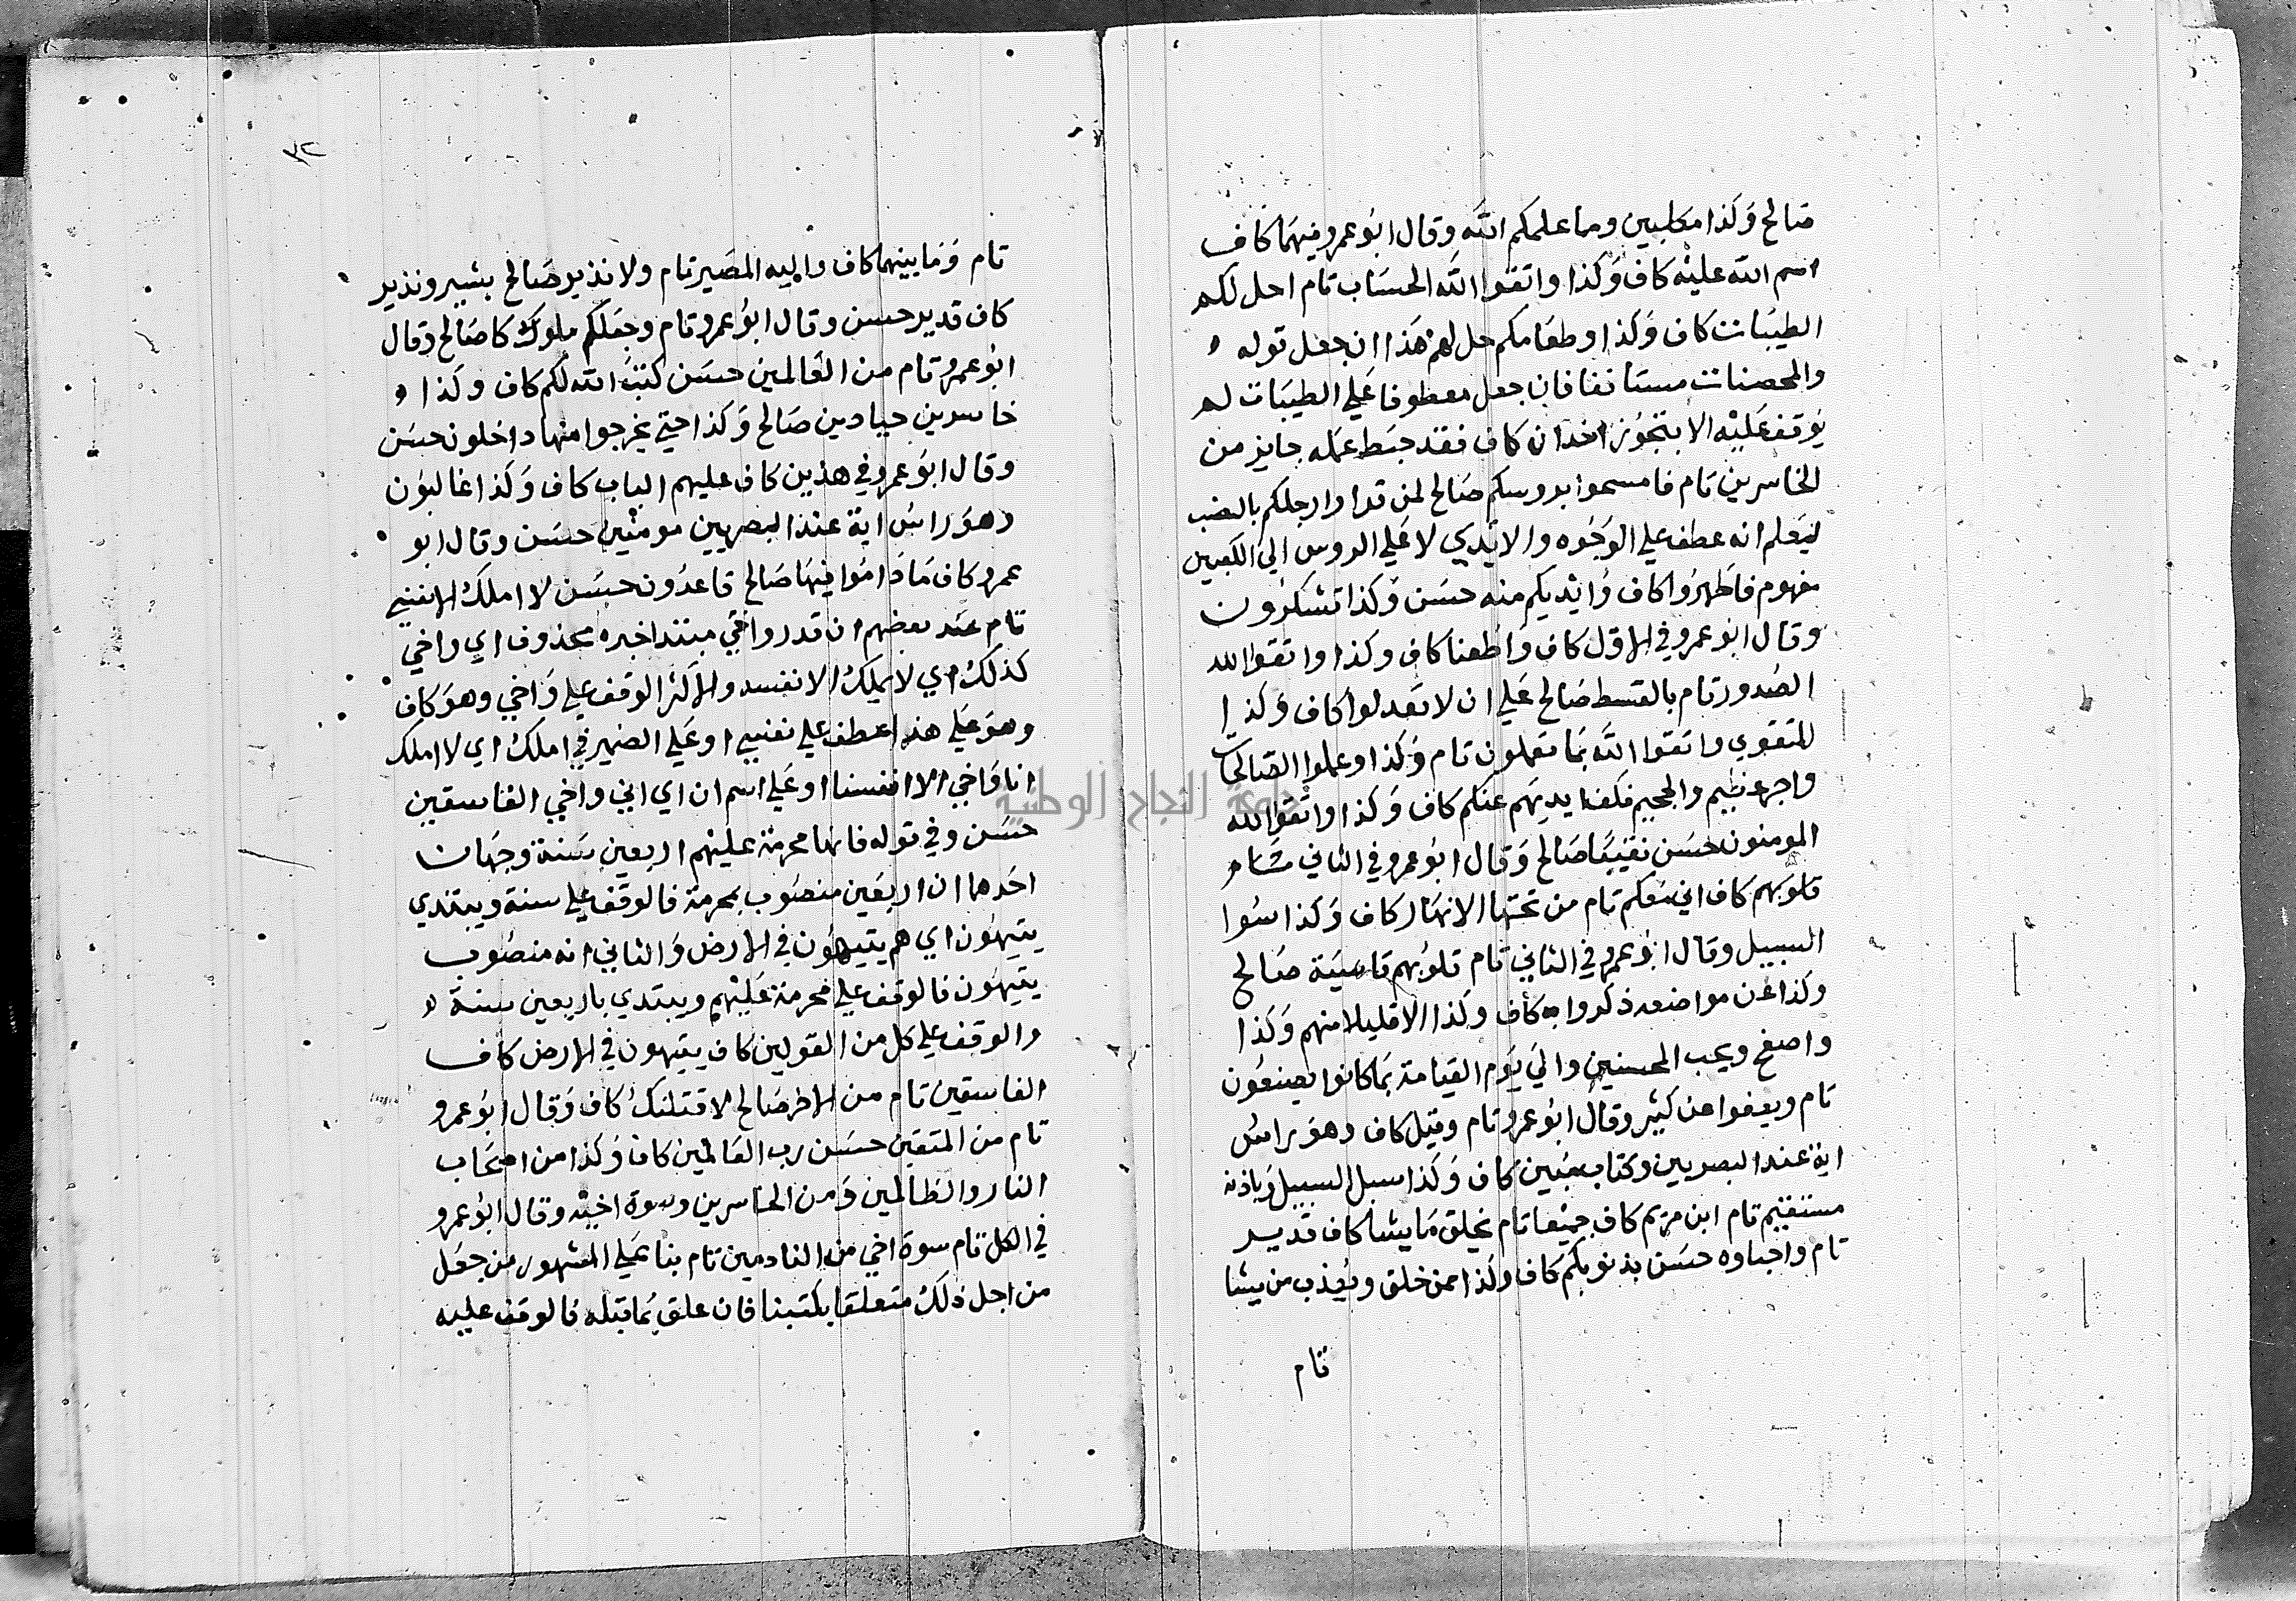 صالح وكذا مكلبين وما علمكم الله وقال ابو عمرو فيهما كاف
اسم الله عليه كاف وكذا واتقوا الله الحساب تام احل لكم
الطيبات كاف وكذا وطعامكم حل لهم هذا ان جعل قوله
والمحصنات مستانفا فان جعل معطوفا علي الطيبات لم
يوقف عليه الا بتجوز اخدان كاف فقد حبط عمله جايز من
الخاسرين تام فامسحوا بروسكم صالح لمن قرا وارجلكم بالنصب
ليعلم انه عطف علي الوجوه والايدي لا علي الروس الي الكعبين
مفهوم فاطهروا كاف وايديكم منه حسن وكذا تشكرون
وقال ابو عمرو في الاول كاف واطعنا كاف وكذا واتقوا الله
الصدور تام بالقسط صالح علي ان لا تعدلوا كاف وكذا
للتقوي واتقوا الله بما تعملون تام وكذا وعملوا الصالحات
واجر عظيم والجحيم فكف ايديهم عنكم كاف وكذا واتقوا الله
المومنون حسن نقيبا صالح وقال ابو عمرو في الثاني تام
قلوبهم كاف اني معكم تام من تحتها الانهار كاف وكذا سوا
السبيل وقال ابو عمرو في الثاني تام قلوبهم قاسية صالح
وكذا عن مواضعه ذكروا به كاف وكذا الا قليلا منهم وكذا
واصفح ويحب المحسنين والي يوم القيامة بما كانوا يصنعون
تام ويعفوا عن كثير وقال ابو عمرو تام وقيل كاف وهو راس
اية عند البصريين وكتاب مبين كاف وكذا سبل السبيل وباذنه
مستقيم تام ابن مريم كاف جميعا تام يخلق ما يشا كاف قدير
تام واحباوه حسن بذنوبكم كاف وكذا ممن خلق ويعذب من يشا
تام
٣٢
تام وما بينهما كاف واليه المصير تام ولا نذير صالح بشير ونذير
كاف قدير حسن وقال ابو عمرو تام وجعلكم ملوكا صالح وقال
ابو عمرو تام من العالمين حسن كتب الله لكم كاف وكذا
خاسرين جبارين صالح وكذا حتي يخرجوا منها داخلون حسن
وقال ابو عمرو في هذين كاف عليهم الباب كاف وكذا غالبون
وهو راس اية عند البصريين مومنين حسن وقال ابو
عمرو كاف ما داموا فيها صالح قاعدون حسن لا املك الا نفسي
تام عند بعضهم ان قدر واخي مبتدا خبره محذوف اي واخي
كذلك اي لا يملك الا نفسه والاكثر الوقف علي واخي وهو كاف
وهو علي هذا عطف علي نفسي او علي الضمير في املك اي لا املك
انا واخي الا انفسنا او علي اسم ان اي اني واخي الفاسقين
حسن وفي قوله فانها محرمة عليهم اربعين سنة وجهان
احدهما ان اربعين منصوب بمحرمة فالوقف علي سنة ويبتدي
يتيهون اي هم يتيهون في الارض والثاني انه منصوب
يتيهون فالوقف علي محرمة عليهم ويبتدي باربعين سنة
والوقف علي كل من القولين كاف يتيهون في الارض كاف
الفاسقين تام من الاخر صالح لاقتلنك كاف وقال ابو عمرو
تام من المتقين حسن رب العالمين كاف وكذا من اصحاب
النار والظالمين ومن الخاسرين وسوة اخيه وقال ابو عمرو
في الكل تام سوة اخي من النادمين تام بنا علي المشهور من جعل
من اجل ذلك متعلقا بكتبنا فان علق بما قبله فالوقف عليه
جامعة النجاح الوطنية